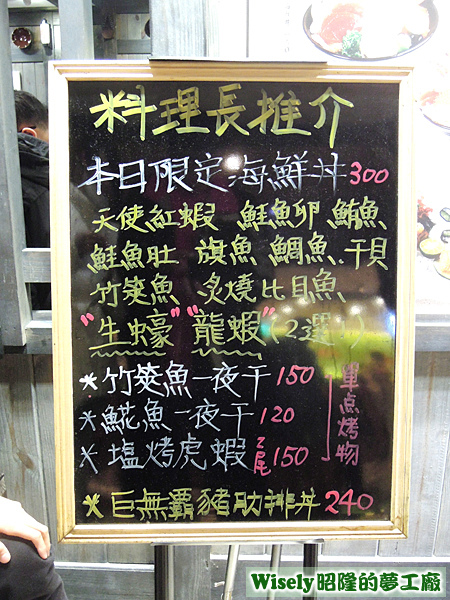 料理長推介
本日限定海鮮丼300
天使紅蝦 鮭魚卵 鮪魚
鮭魚肚 旗魚 鯛魚.干貝
竹筴魚 炙燒比目魚
"生蠔""龍蝦"(2選1)
*竹筴魚一夜干150
*魷魚一夜干120
*塩烤虎蝦2尾150
單点烤物
*巨無霸豬肋排丼240
Wisely昭隆的夢工廠